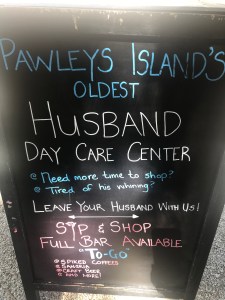 PAWLEYS ISLAND'S
OLDEST
HUSBAND
DAY CARE CENTER
@ Need more time to shop?
@ Tired of his whining?
LEAVE YOUR HUSBAND WITH US!
SIP & SHOP
FULL BAR AVAILABLE
"TO-GO"
@ SPIKED COFFEES
@ SANGRIA
@ CRAFT BEER
@ AND MORE!